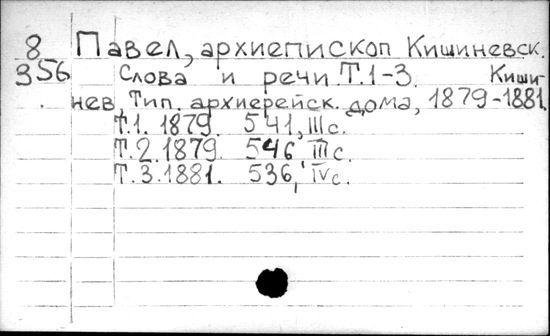 8 Павел, архиепископ Кишиневск.
356 Слова и речи. Т.1-3. Киши-
нев, Тип. архиерейск. дома, 1879-1881.
Т.1. 1879. 541, III с.
Т.2. 1879. 546, III с.
Т.3. 1881. 536, IV с.